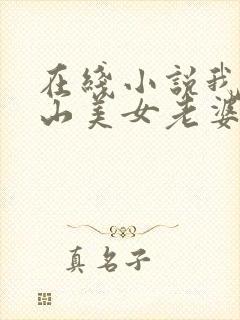 在线小说我
山美女老婆
真名子